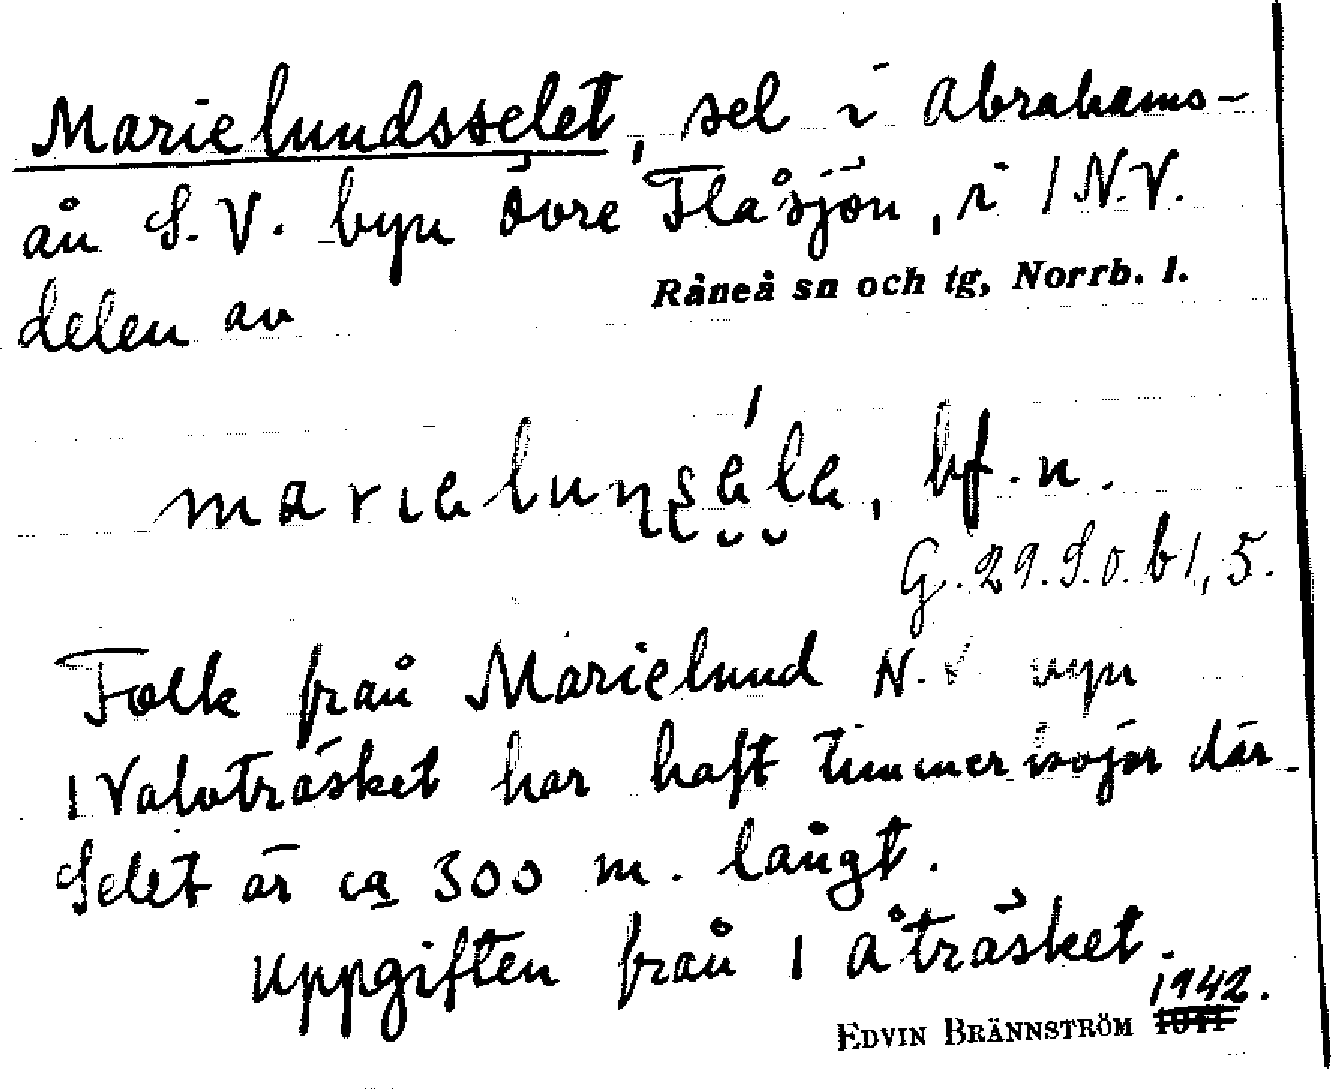 Marielundsselet, sel i Abrahams-
ån S.V. byn Övre Flåsjön, i / N.V.
Råneå sn och tg, Norrb. l.
delen av
bf. n.
G. 29. S.o. b1, 5.
Folk från Marielund N. V byn
/ Valvträsket har haft timmerkojor där.
Selet är ca 300 m. långt.
Uppgiften från / Åträsket.
1942.
EDVIN BRÄNNSTRÖM 1941